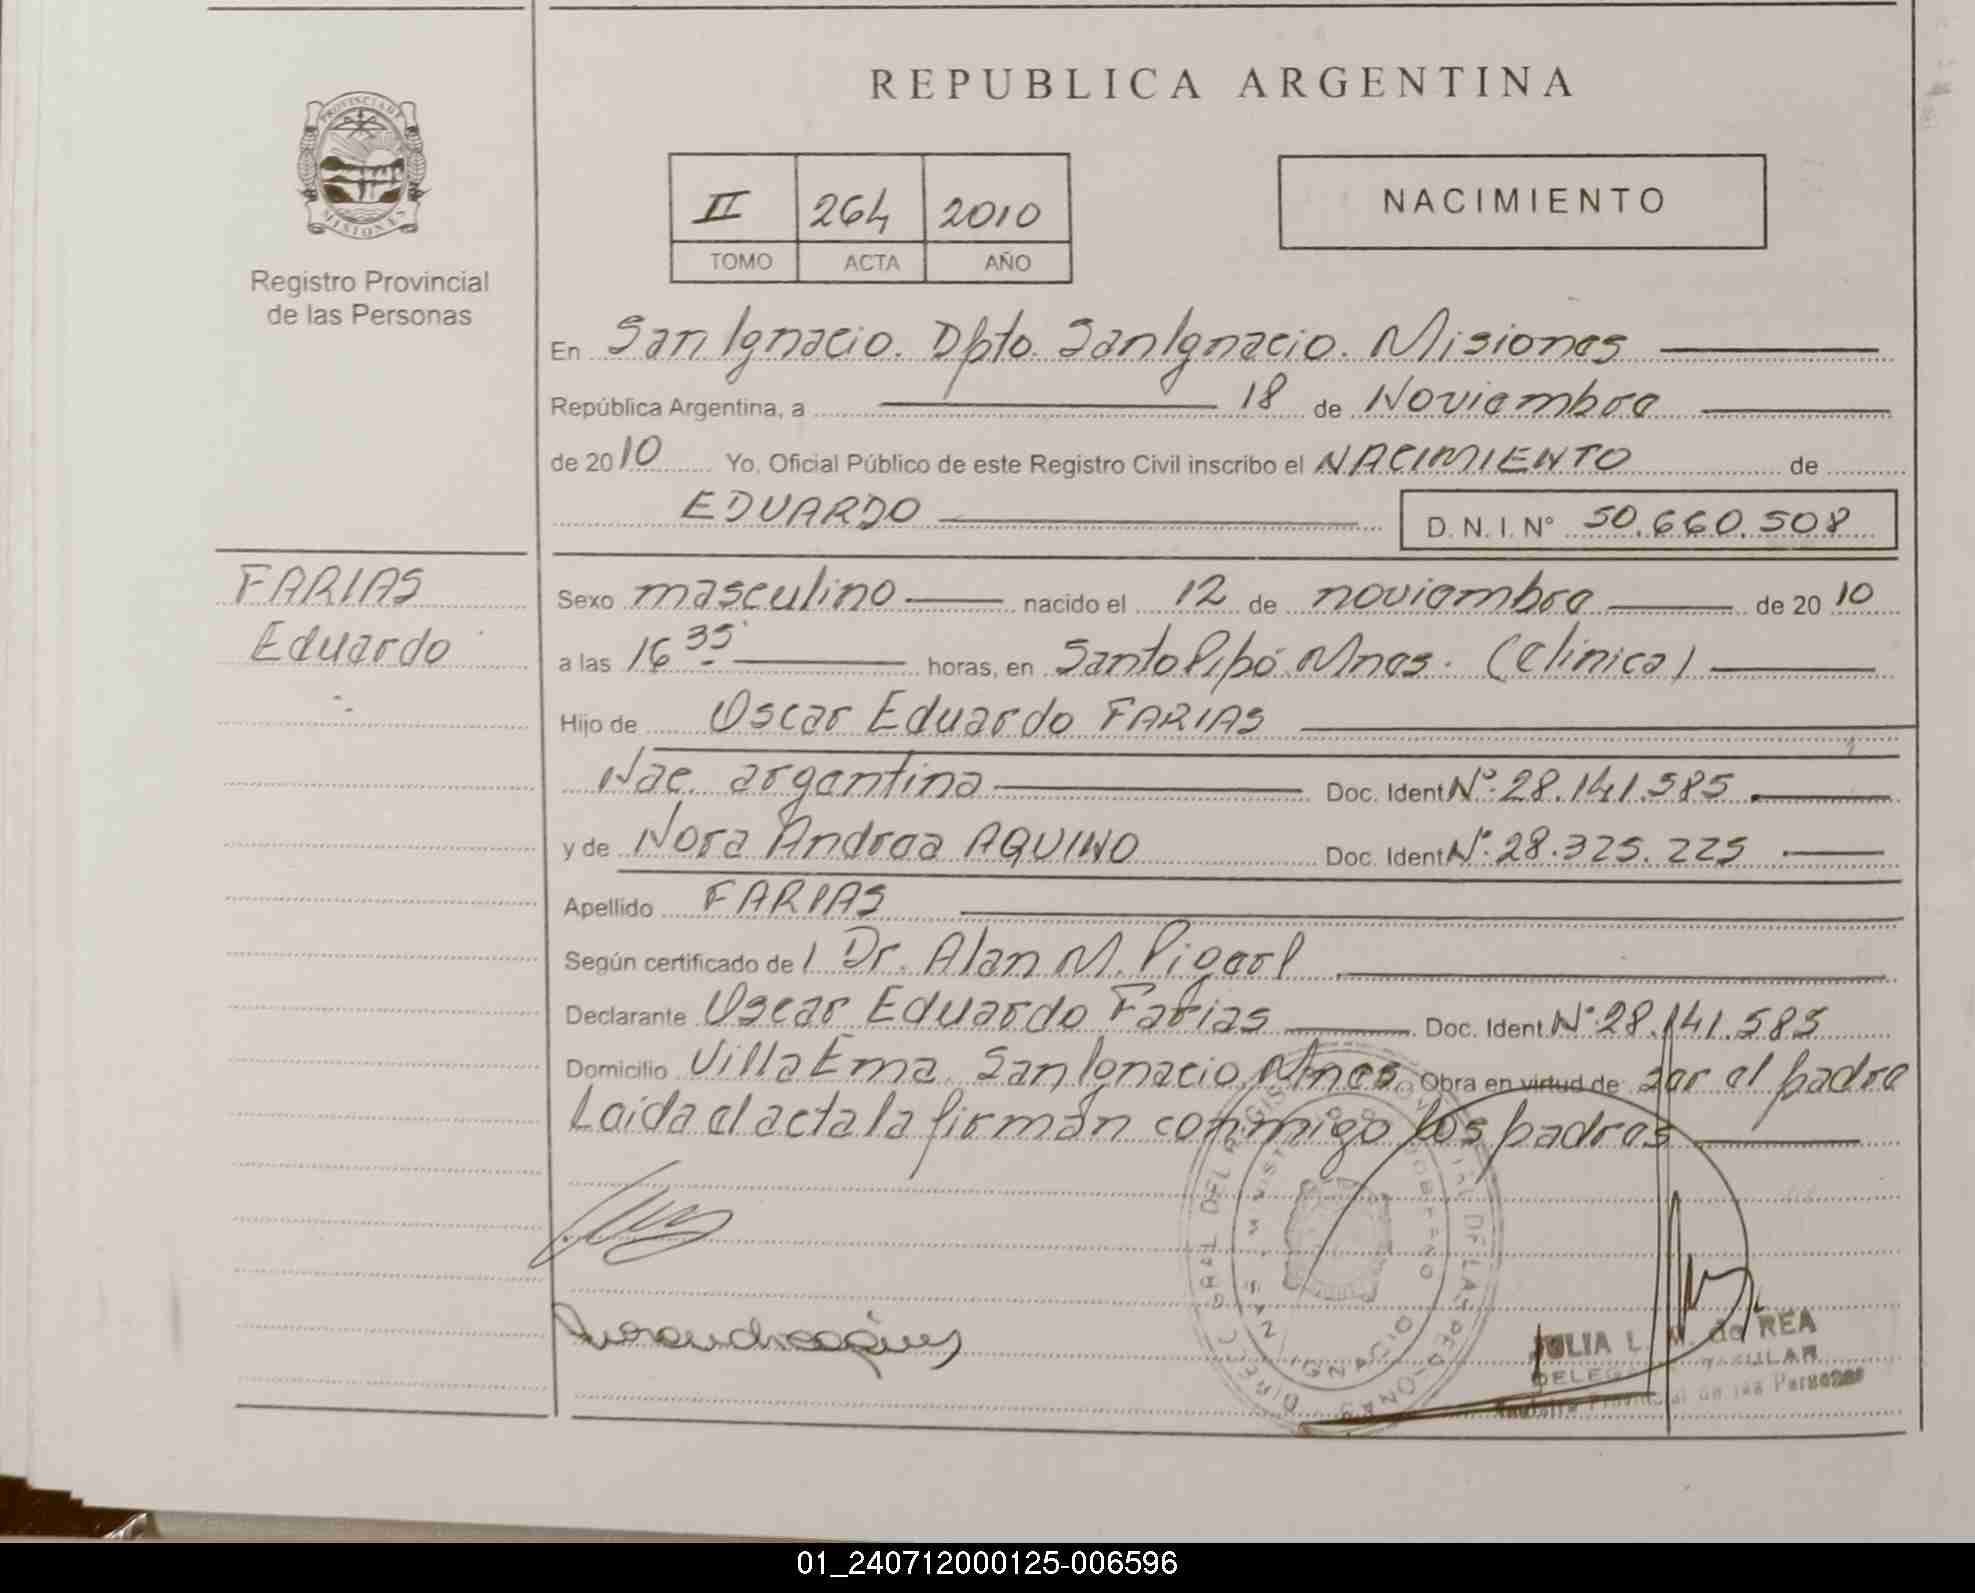 REPUBLICA ARGENTINA
PROVINCIA DE MISIONES
Registro Provincial
de las Personas
II 264 2010
TOMO ACTA AÑO
NACIMIENTO
En San Ignacio. Dpto. San Ignacio. Misiones
República Argentina, a 18 de Noviembre
de 2010 Yo, Oficial Público de este Registro Civil inscribo el NACIMIENTO de
EDUARDO D. N. I. N° 50.660.508
FARIAS
Eduardo
Sexo masculino nacido el 12 de noviembre de 2010
a las 16 35 horas, en Santo Pipó. Mnes. (Clinica)
Hijo de Oscar Eduardo FARIAS
Nac. argentina Doc. Ident. N°: 28.141.585
y de Nora Andrea AQUINO Doc. Ident. N°: 28.325.225
Apellido FARIAS
Según certificado de l Dr. Alan M.
Declarante Oscar Eduardo Farias Doc. Ident. N°: 28.141.585
Domicilio Villa Ema. San Ignacio. Mnes. Obra en virtud de ser el padre
Leida el acta la firman conmigo los padres
JULIA L. M. de REA
TITULAR
Registro Provincial de las Personas
01_240712000125-006596